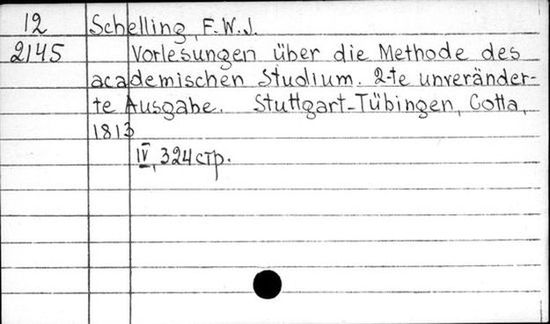 12 Schelling, F.W.J.
2145 Vorlesungen über die Methode des
academischen Studium. 2-te unveränder-
te Ausgabe. Stuttgart-Tübingen, Cotta,
1813
IV, 324 стр.